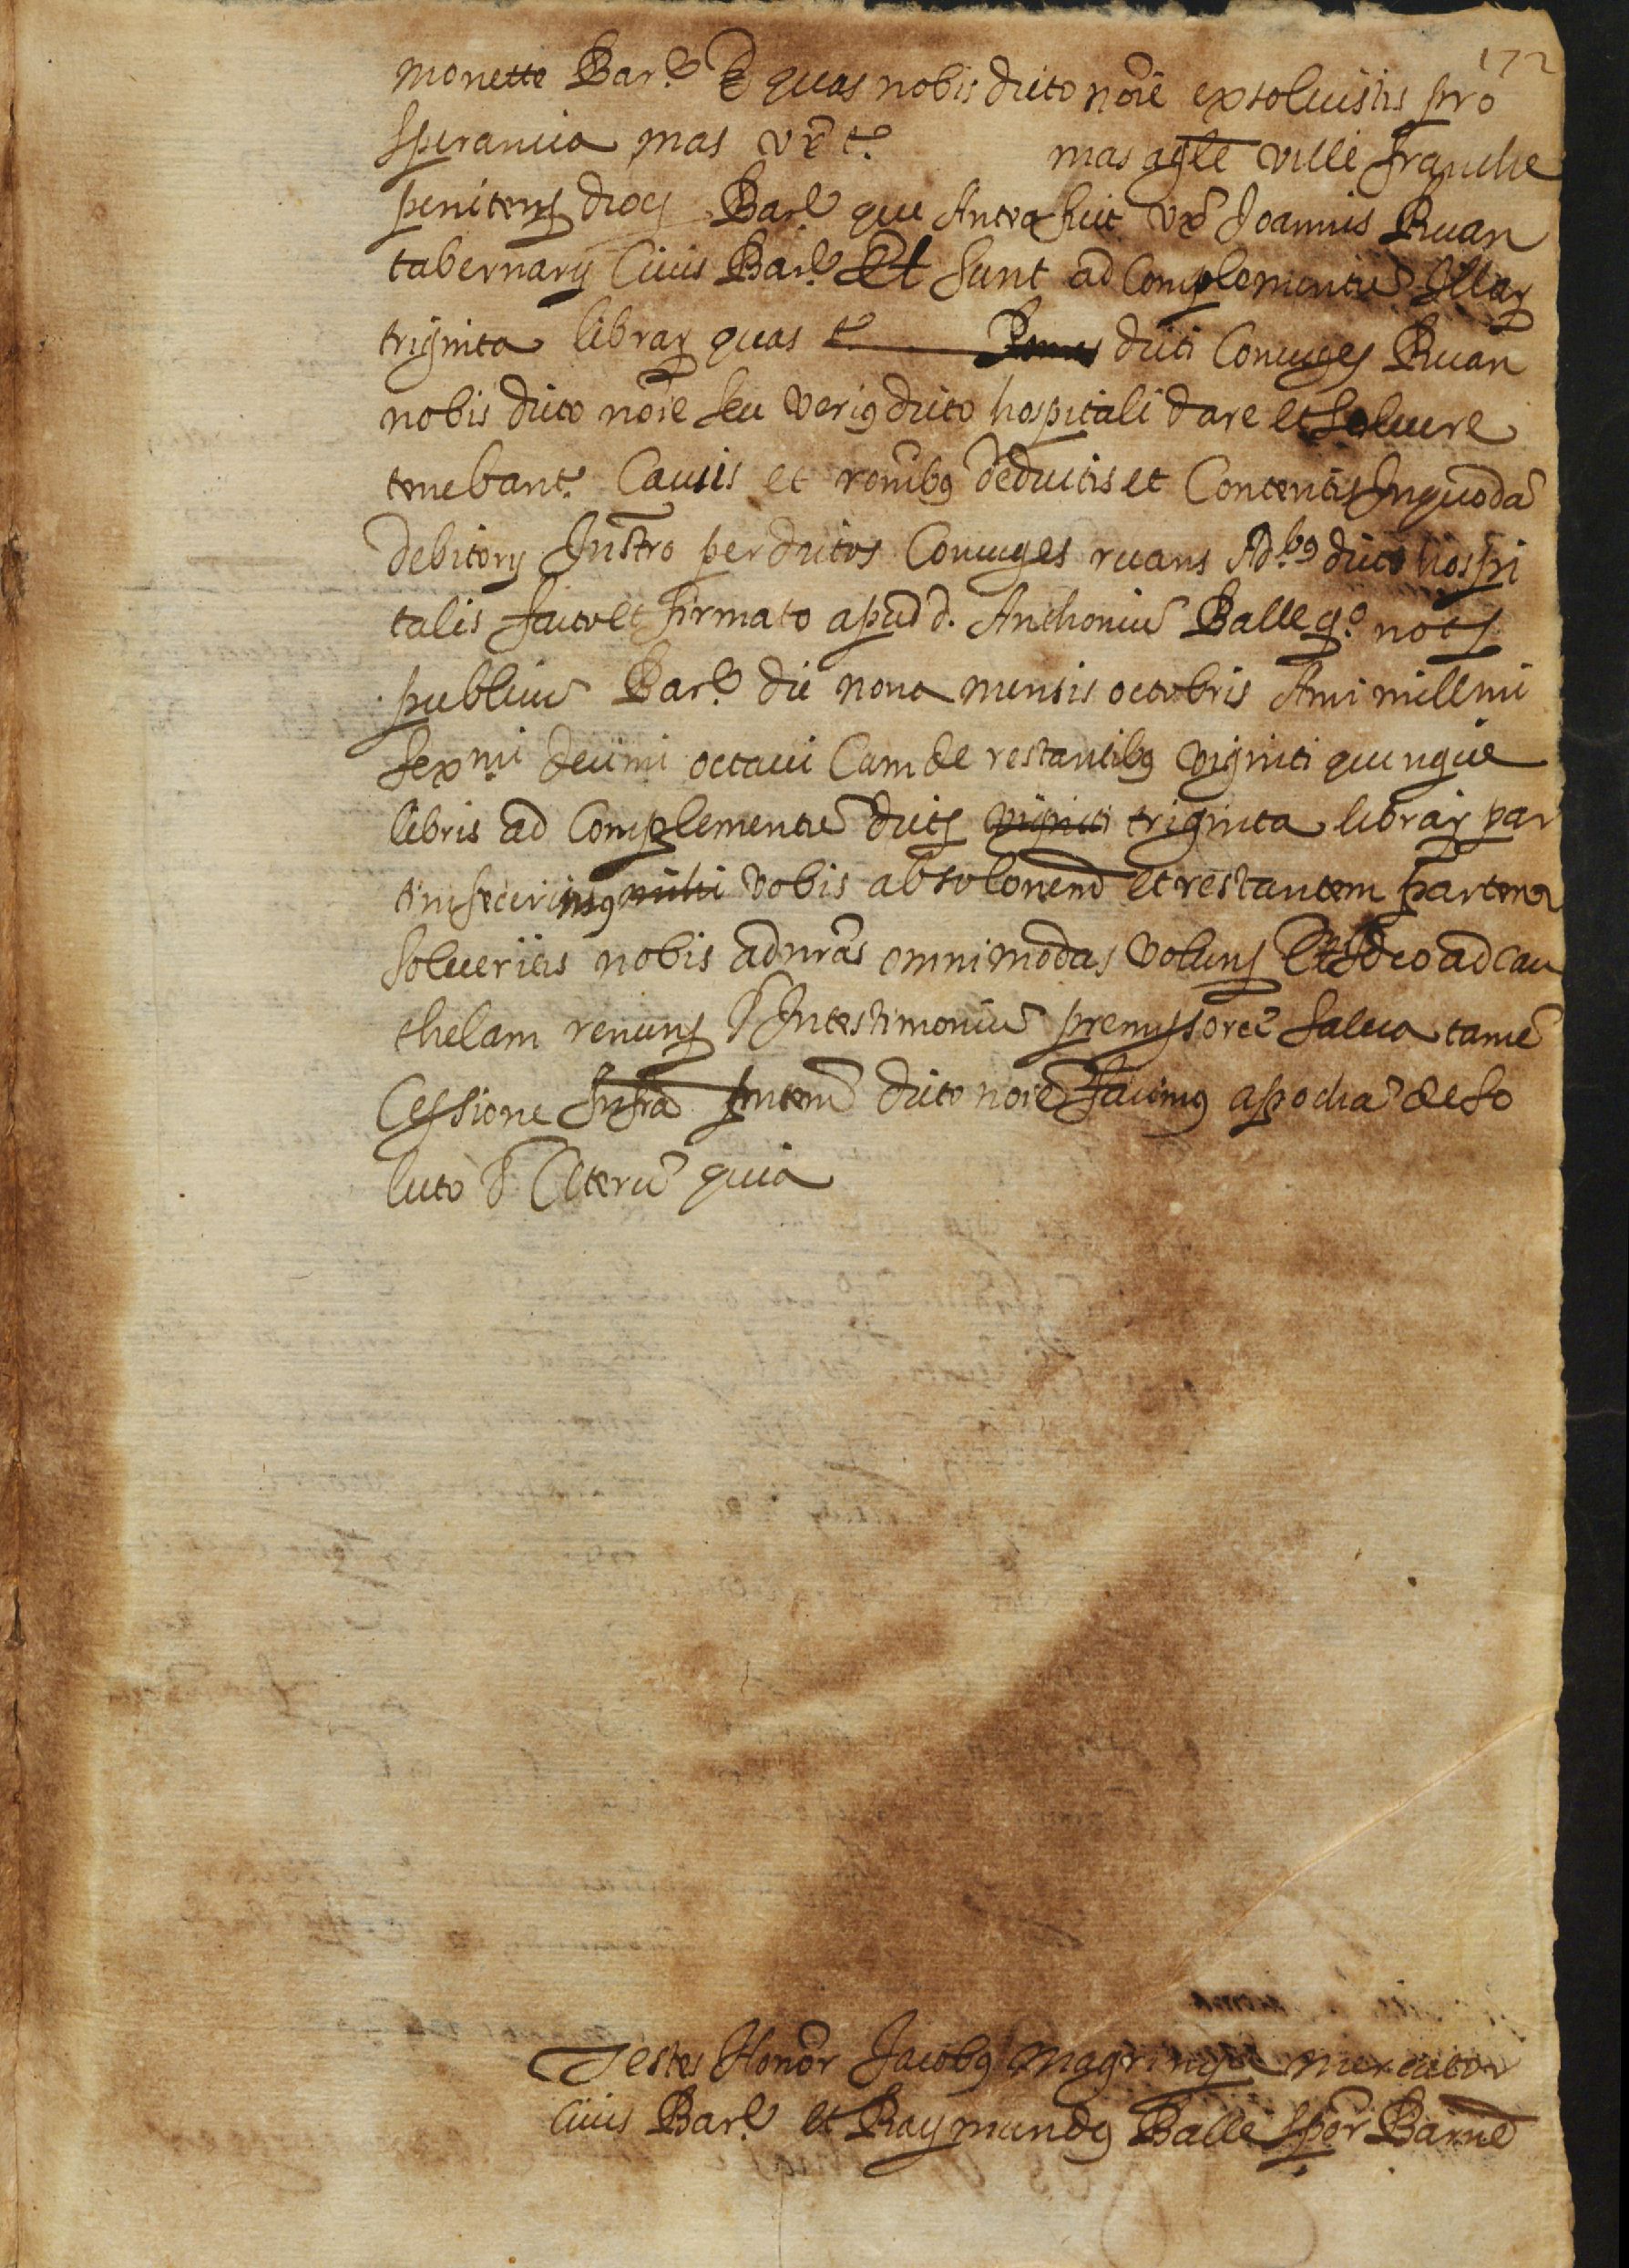 172
monette Bar.e Et quas nobis dicto noīe exsoluistis pro
sperancia mas vx̄ t.e mas agle ville franche
penitens dioc̄s Bar.e que Antea fuit vx̄ Joannis Ruan
tabernarij Ciuis Bar.e Et sunt ad Complementū Illar
triginta librar quas t.e dicti Coniuges Ruan
nobis dicto noīe seu verius dicto hospitali dare et soluere
tenebant.r Causis et ronībus deductis et Contentis Inquodā
debitorij Instrō per dictos Coniuges ruans Ad.bus dicto hospi
talis facto et firmato apud d. Anthoniū Balle q.o not̄s
publicū Bar.e die nona mensis octobris Anni millmi
sex.mi decimi octaui Cum de restantibus viginti quinque
libris ad Complementū dicts viginti triginta librar par
tim fecerimus mihi vobis absolōnem et restantem partem
solueritis nobis ad nrās omnimodas voluns Et Ideo ad cau
thelam renuns & In testimoniū premissorū salua tamē
Cessione Infrā pntem dicto noīe facimus apochā de so
luto & Ceterū quia
Testes Honor Jacobus magrinya mercator
ciuis Bar.e et Raymundus Balle sptor Barne